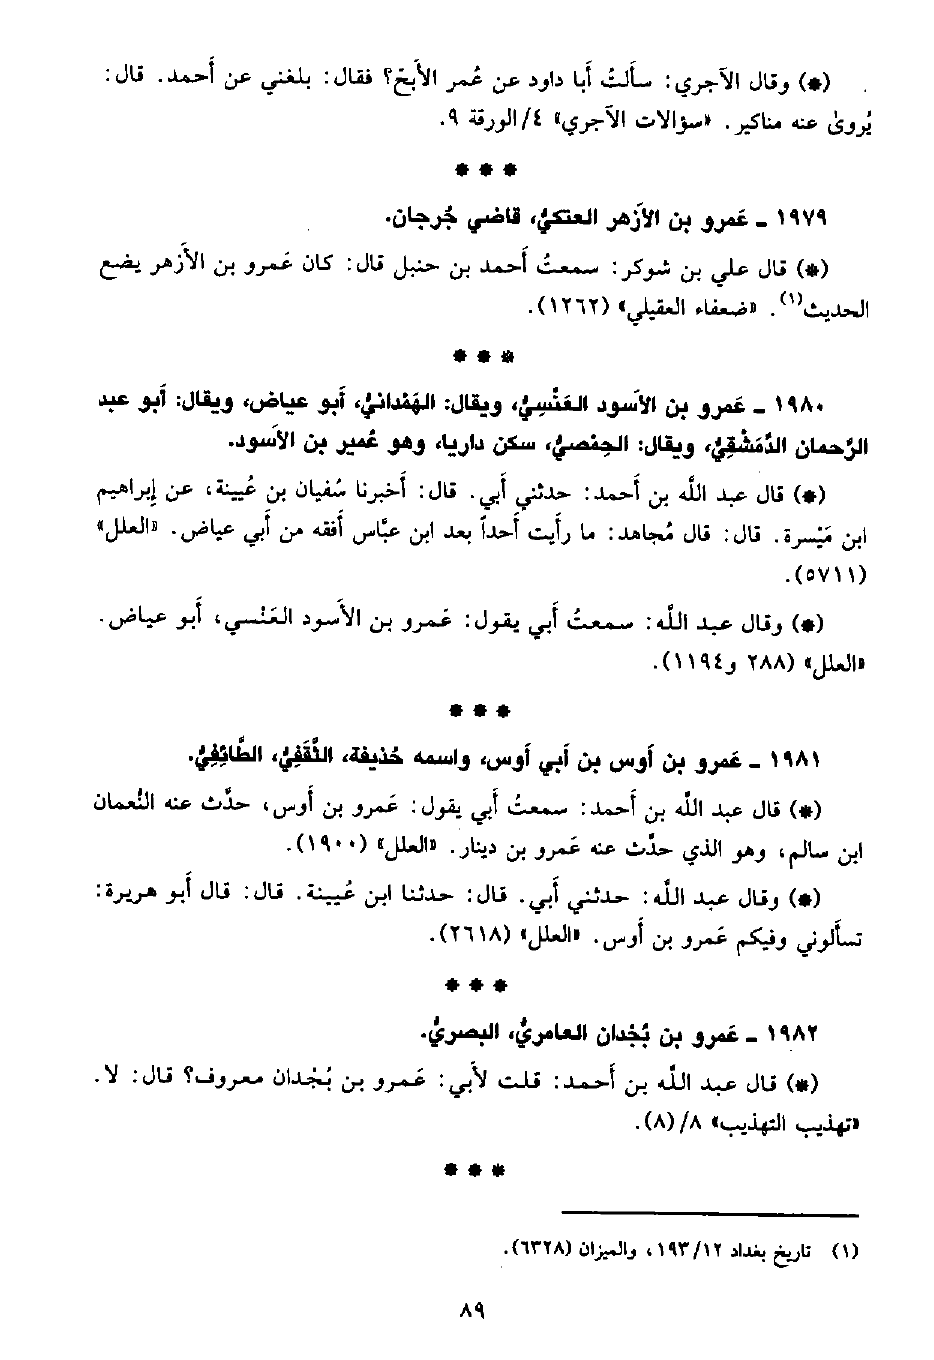 (*) وقال الآجري: سألتُ أبا داود عن عُمر الأبَحّ؟ فقال: بلغني عن أَحمد. قال:
يُروىٰ عنه مناكير. «سؤالات الآجري» ٤/الورقة ٩.
* * *
١٩٧٩ - عَمرو بن الأَزهر العتكيُّ، قاضي جُرجان.
(*) قال علي بن شوكر: سمعتُ أَحمد بن حنبل قال: كان عَمرو بن الأَزهر يضع
الحديث(١). «ضعفاء العقيلي» (١٢٦٢).
* * *
١٩٨٠ - عَمرو بن الأَسود العَنْسِيُّ، ويقال: الهَمْدانيُّ، أَبو عياض، ويقال: أَبو عبد
الرَّحمان الدِّمَشْقِيُّ، ويقال: الحِمْصيُّ، سكن داريا، وهو عُمير بن الأَسود.
(*) قال عبد الله بن أَحمد: حدثني أَبي. قال: أَخبرنا سُفيان بن عُيينة، عن إِبراهيم
ابن مَيْسرة. قال: قال مُجاهد: ما رأَيت أَحداً بعد ابن عبَّاس أَفقه من أَبي عياض. «العلل»
(٥٧١١).
(*) وقال عبد الله: سمعتُ أَبي يقول: عَمرو بن الأَسود العَنْسي، أَبو عياض.
«العلل» (٢٨٨ و١١٩٤).
* * *
١٩٨١ - عَمرو بن أَوس بن أَبي أَوس، واسمه حُذيفة، الثَّقَفِيُّ، الطَّائِفِيُّ.
(*) قال عبد الله بن أَحمد: سمعتُ أَبي يقول: عَمرو بن أَوس، حدَّث عنه النُّعمان
ابن سالم، وهو الذي حدَّث عنه عَمرو بن دينار. «العلل» (١٩٠٠).
(*) وقال عبد الله: حدثني أَبي. قال: حدثنا ابن عُيينة. قال: قال أَبو هريرة:
تسأَلوني وفيكم عَمرو بن أَوس. «العلل» (٢٦١٨).
* * *
١٩٨٢ - عَمرو بن بُجْدان العامريُّ، البصريُّ.
(*) قال عبد الله بن أَحمد: قلت لأَبي: عَمرو بن بُجْدان معروف؟ قال: لا.
«تهذيب التهذيب» ٨/ (٨).
* * *
(١) تاريخ بغداد ١٢/ ١٩٣، والميزان (٦٣٢٨).
٨٩